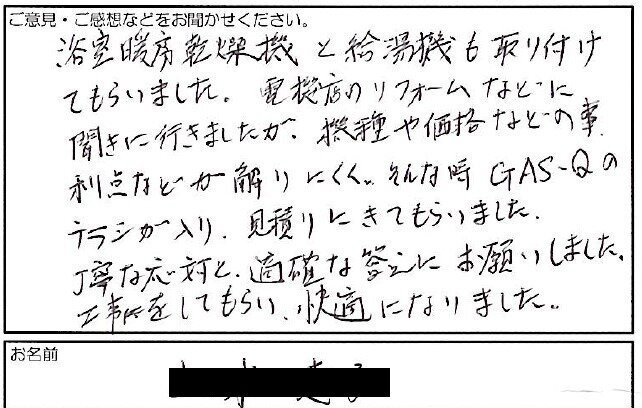 ご意見・ご感想などをお聞かせください。
浴室暖房乾燥機と給湯機も取り付け
てもらいました。電機店のリフォームなどに
聞きに行きましたが、機種や価格などの事
利点などが解りにくく、そんな時GAS-Qの
チラシが入り、見積りにきてもらいました。
丁寧な応対と、適確な答えにお願いしました。
工事をしてもらい、快適になりました。
お名前